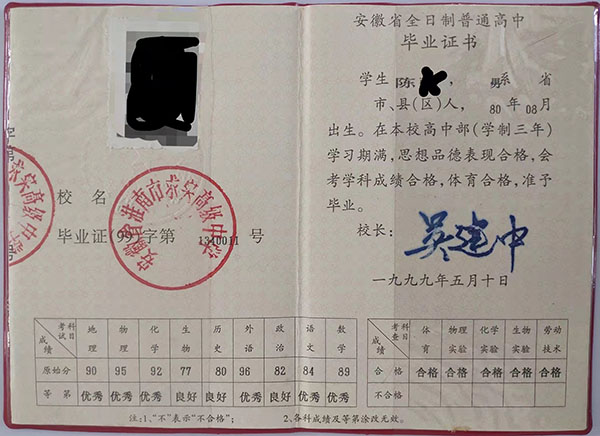 校名
毕业证(99)字第1310011号
安徽省淮南市
高级中学
考试科目 地理 物理 化学 生物 历史 外语 政治 语文 数学
成绩
原始分 90 95 92 77 80 96 82 84 89
等第 优秀 优秀 优秀 良好 良好 优秀 良好 优秀 优秀
注:1、“不”表示“不合格”; 2、各科成绩及等第涂改无效。
安徽省全日制普通高中
毕业证书
学生陈 , 男系 省
市、县(区)人, 80年08月
出生。在本校高中部(学制三年)
学习期满,思想品德表现合格,会
考学科成绩合格,体育合格,准予
毕业。
校长: 吴建中
一九九九年五月十日
考查科目 体育 物理实验 化学实验 生物实验 劳动技术
成绩
合格 合格 合格 合格 合格 合格
不合格